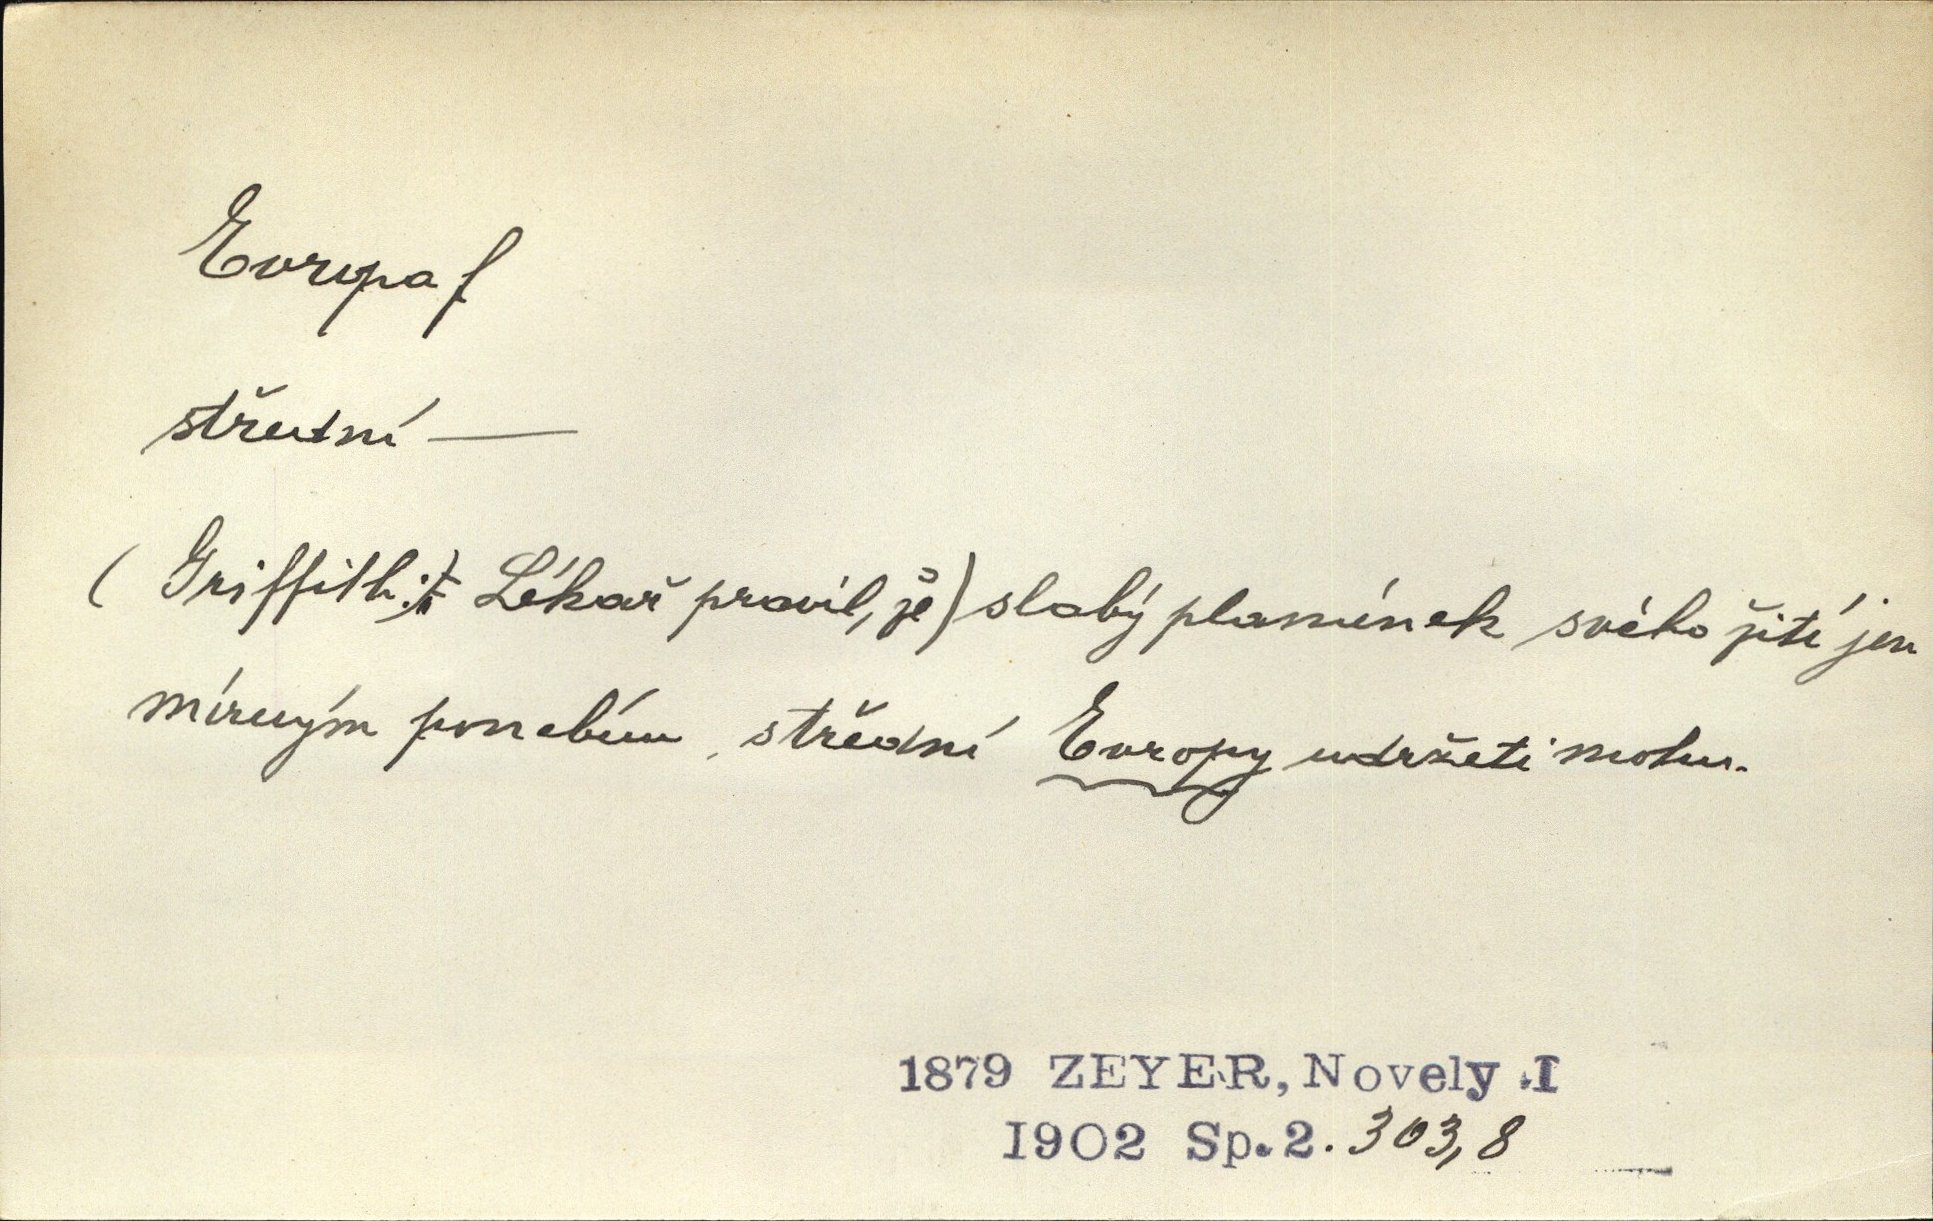 Evropa f
střední —
(Griffith:) Lékař pravil, že) slabý plamének svého žití jen
mírným ponebím střední Evropy udržeti mohu.
1879 ZEYER, Novely I
1902 Sp.2. 303,8